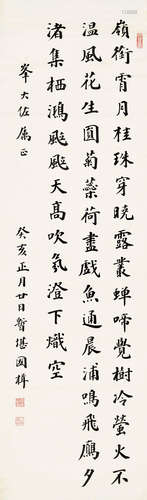 嶺銜霄月桂珠穿曉露叢蟬啼覺樹冷螢火不
溫風花生圓菊蘂荷盡戲魚通晨浦鳴飛鴈夕
渚集栖鴻颯颯天高吹氛澄下熾空
峯大佐属正
癸亥正月廿日